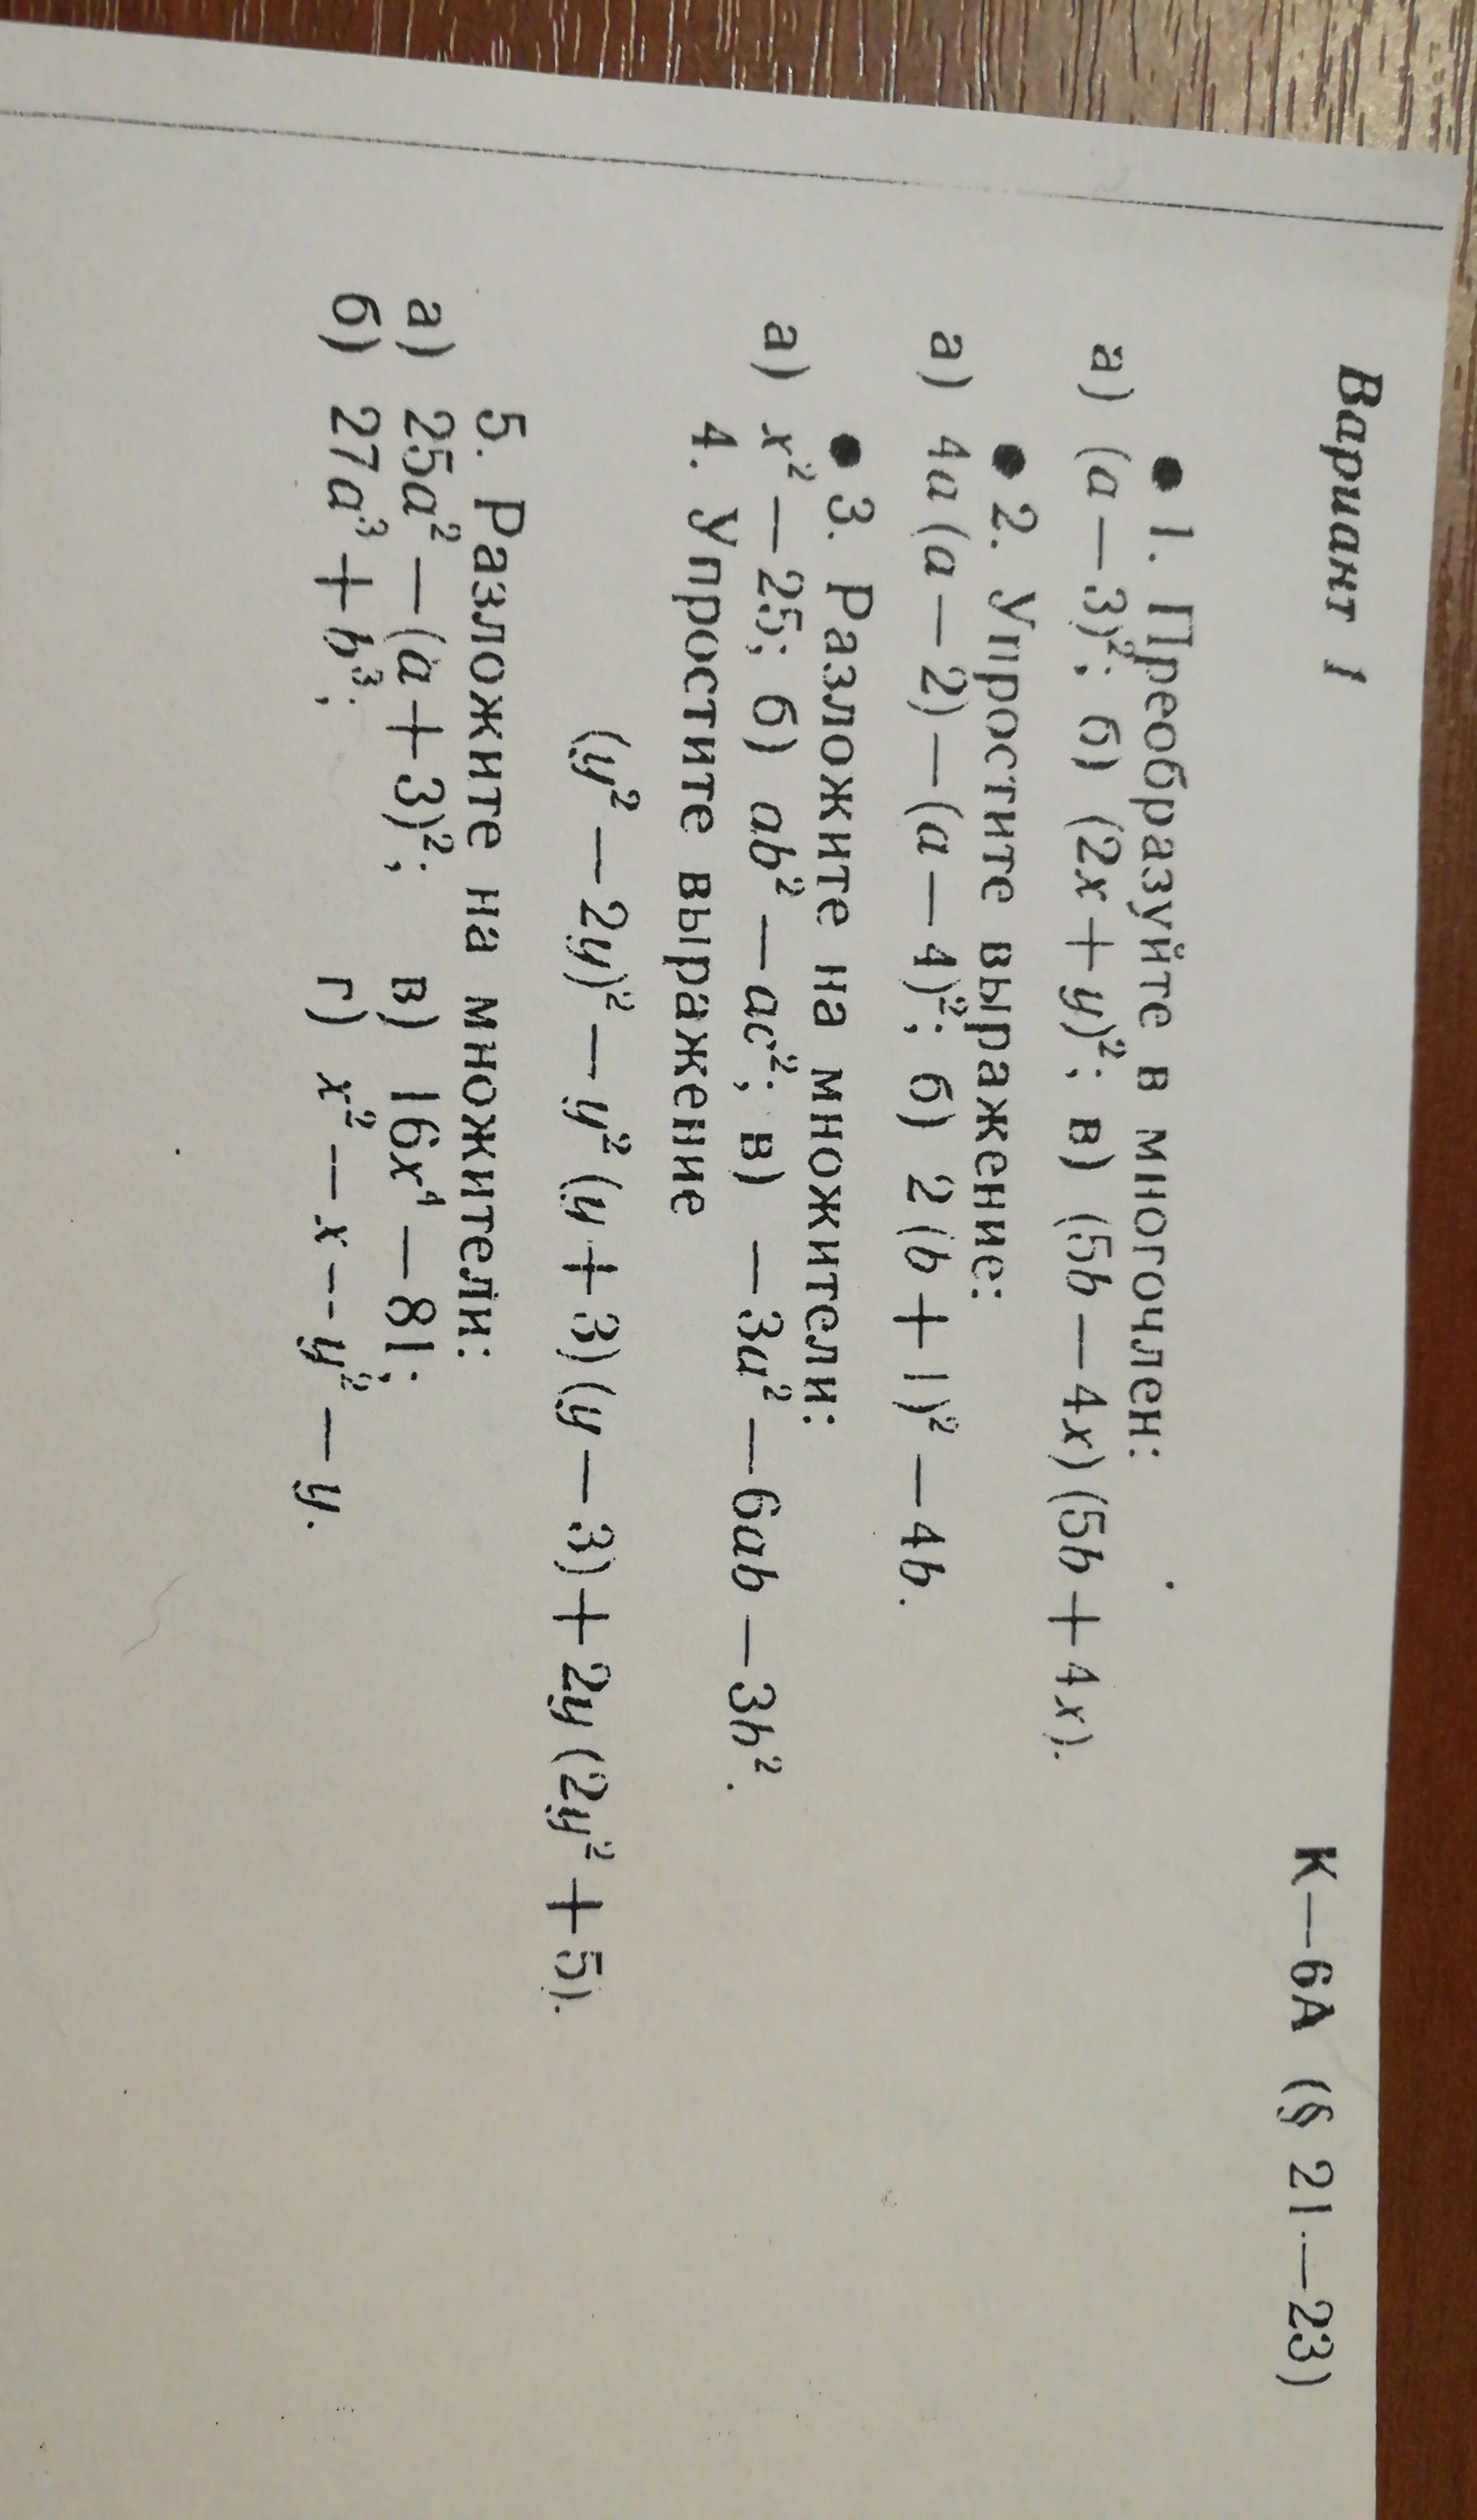 К—6А (§ 21—23)
Вариант 1
● 1. Преобразуйте в многочлен:
а) (a — 3)²; б) (2x + y)²; в) (5b — 4x) (5b + 4x).
● 2. Упростите выражение:
а) 4a (a — 2) — (a — 4)²; б) 2 (b + 1)² — 4b.
● 3. Разложите на множители:
а) x² — 25; б) ab² — ac²; в) —3a² — 6ab — 3b².
4. Упростите выражение
(y² — 2y)² — y² (y + 3) (y — 3) + 2y (2y² + 5).
5. Разложите на множители:
а) 25a² — (a + 3)²; в) 16x⁴ — 81;
б) 27a³ + b³; г) x² — x — y² — y.